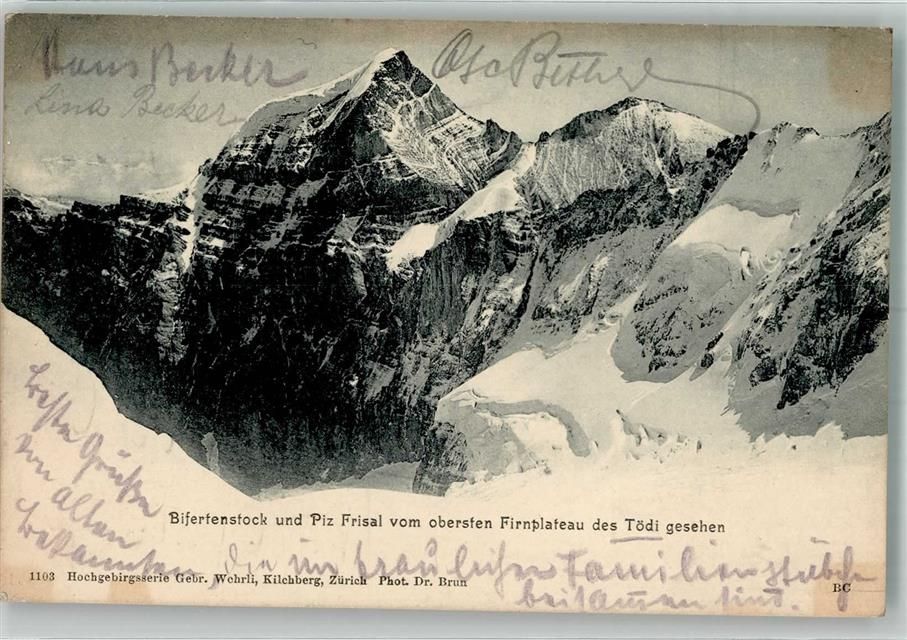 Hans Becker
Lina Becker
Otto Bettige
Beste Grüße
von
alten
Bekannten,
die im traulichen Familienstübch
beisammen sind.
Bifertenstock und Piz Frisal vom obersten Firnplateau des Tödi gesehen
1103 Hochgebirgsserie Gebr. Wehrli, Kilchberg, Zürich Phot. Dr. Brun
BC